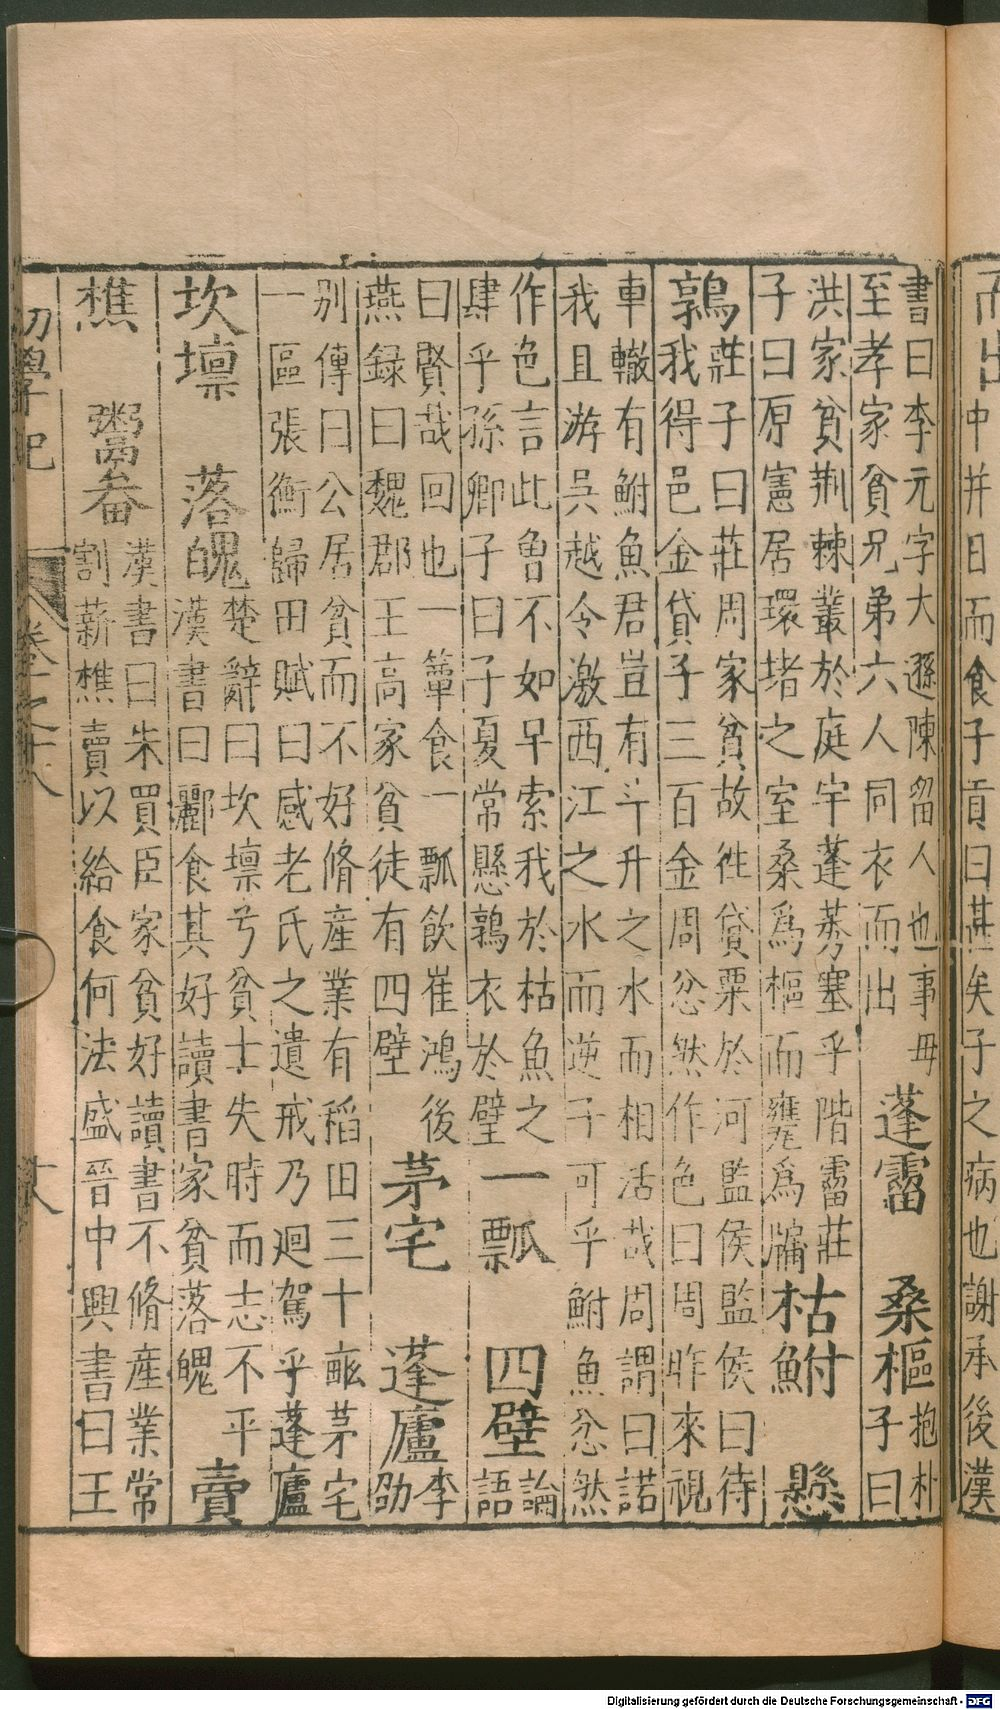 而出
中并日而食子貢曰甚矣子之病也謝承後漢
書曰李元字大遜陳留人也事毋
至孝家貧兄弟六人同衣而出
蓬霤　桑樞
抱朴
子曰
洪家貧荆棘叢於庭宇蓬莠塞乎階霤莊
子曰原憲居環堵之室桑爲樞而甕爲牖
枯鮒　懸
鶉
莊子曰莊周家貧故往貸粟於河監侯監侯曰待
我得邑金貸子三百金周忿然作色曰周昨來視
車轍有鮒魚君豈有斗升之水而相活哉周謂曰諾
我且游吳越令激西江之水而逆子可乎鮒魚忿然
作色言此魯不如早索我於枯魚之
肆乎孫卿子曰子夏常懸鶉衣於壁
一瓢　四壁
論
語
曰賢哉回也一簞食一瓢飲崔鴻後
燕録曰魏郡王高家貧徒有四壁
茅宅　蓬廬
李
劭
别傳曰公居貧而不好脩産業有稻田三十畝茅宅
一區張衡歸田賦曰感老氏之遺戒乃廻駕乎蓬廬
坎壈　落魄
楚辭曰坎壈兮貧士失時而志不平
漢書曰酈食其好讀書家貧落魄
賣
樵　鬻畚
漢書曰朱買臣家貧好讀書不脩産業常
割薪樵賣以給食何法盛晉中興書曰王
初學記　卷之十八　十八
Digitalisierung gefördert durch die Deutsche Forschungsgemeinschaft - DFG